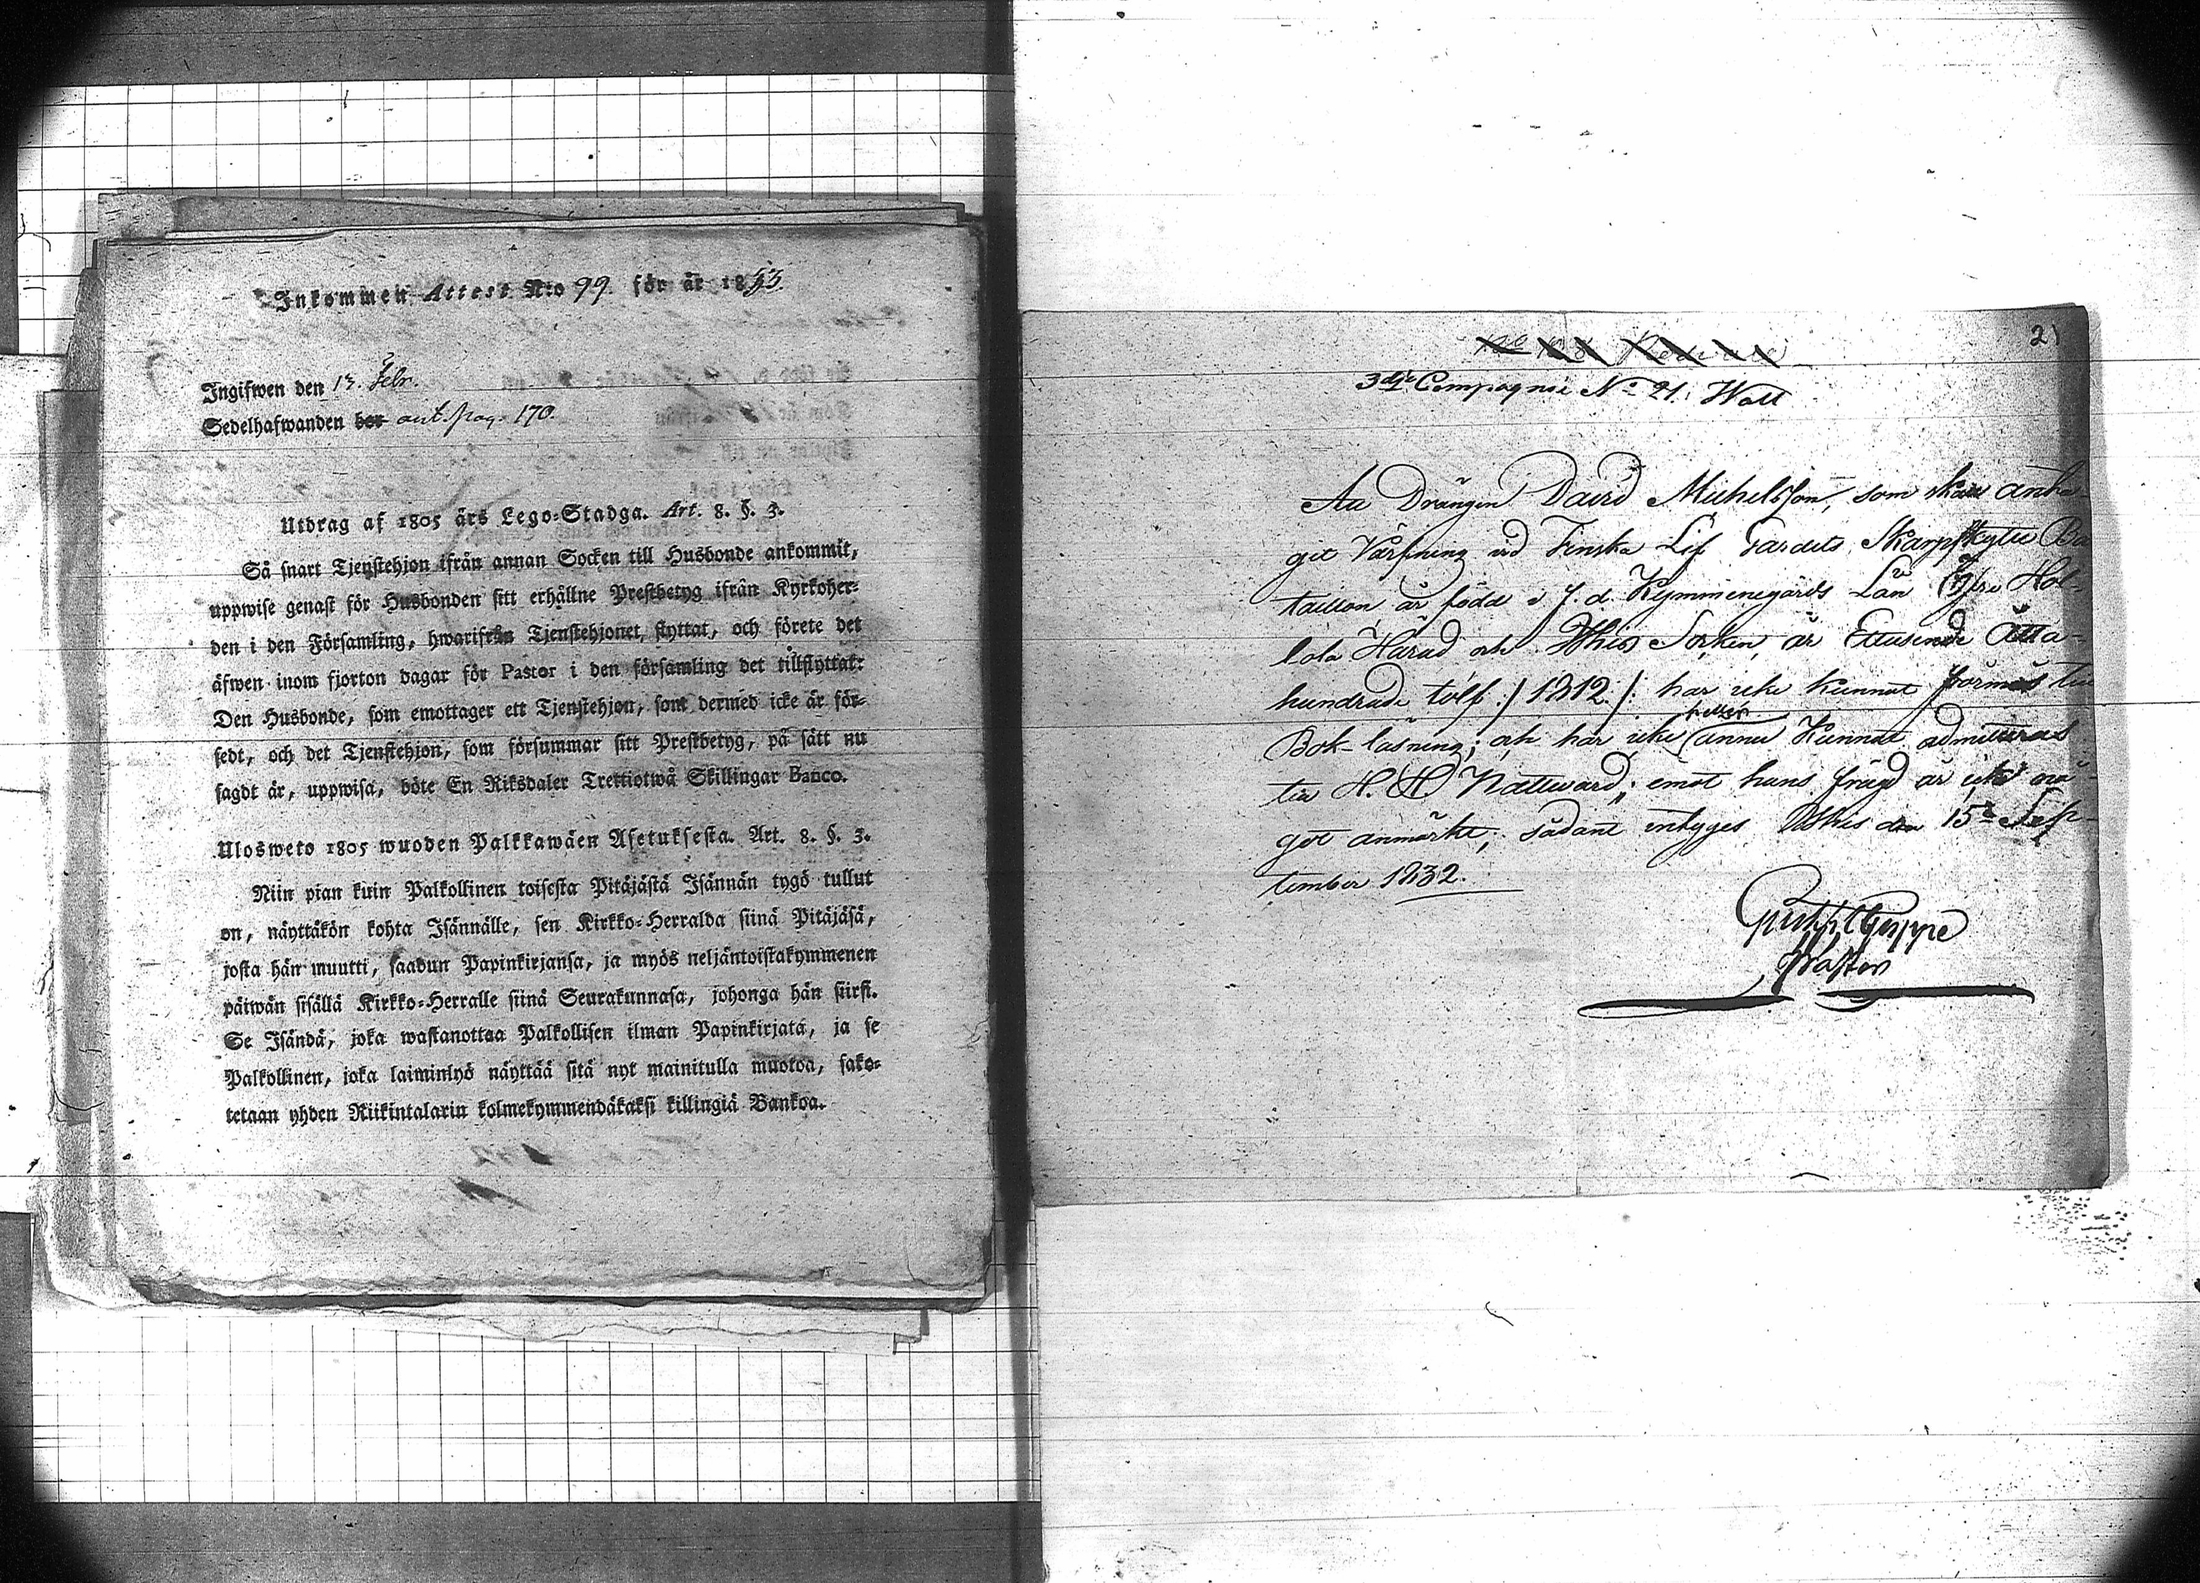 Inkommen Attest N:o 99. för år 1853.
Ingifwen den 13. Febr.
Sedelhafwanden ber ant. pag. 170.
Utdrag af 1805 års Lego-Stadga. Art. 8. §. 3.
Så snart Tjenstehjon ifrån annan Socken till Husbonde ankommit,
uppwise genast för Husbonden sitt erhållne Prestbetyg ifrån Kyrkoher-
den i den Församling, hwarifrån Tjenstehjonet flyttat, och förete det
äfwen inom fjorton dagar för Pastor i den församling det tillflyttat:
Den Husbonde, som emottager ett Tjenstehjon, som dermed icke är för-
sedt, och det Tjenstehjon, som försummar sitt Prestbetyg, på sätt nu
sagdt är, uppwisa, böte En Riksdaler Trettiotwå Skillingar Banco.
Ulosweto 1805 wuoden Palkkawäen Asetuksesta. Art. 8. §. 3.
Niin pian kuin Palkollinen toisesta Pitäjästä Isännän tygö tullut
on, näyttäkön kohta Isännälle, sen Kirkko-Herralda siinä Pitäjäsä,
josta hän muutti, saadun Papinkirjansa, ja myös neljäntoistakymmenen
päiwän sisällä Kirkko-Herralle siinä Seurakunnasa, johonga hän siirsi.
Se Isändä, joka wastanottaa Palkollisen ilman Papinkirjata, ja se
Palkollinen, joka laiminlyö näyttää sitä nyt mainitulla muotoa, sako-
tetaan yhden Riikintalarin kolmekymmendäkaksi killingiä Bankoa.
21
3dje Compagnie No 21. Wall
Att Drängen David Michelsson, som skall anta-
git Värfning vid Finska Lif Gardets Skarpskytte Ba
taillon, är född i f. d. Kymmenegårds Län Öfre Hol-
lola Härad och Socken, år Ettusende Åtta-
hundrade tolf :/ 1812 /: har icke kunnat förmås till
Bok-läsning; och har icke heller ännu kunnat admitteras
till H. H. Nattward; emot hans frägd är icke nå-
got anmärkt; sådant intygges den 15de Sep-
tember 1832.
Pastor